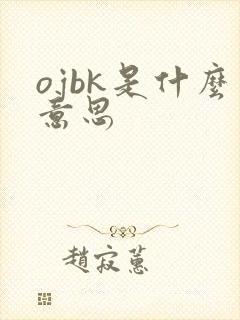 ojbk是什麼
意思
趙寂蕙